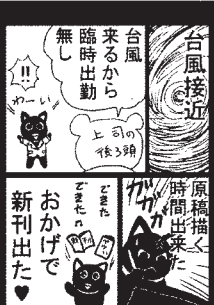 台風接近
台風
来るから
臨時出勤
無し
!!
わーい
上司の
後ろ頭
原稿描く
時間出来た
ガガガ
できた
できた
おかげで
新刊出た♥